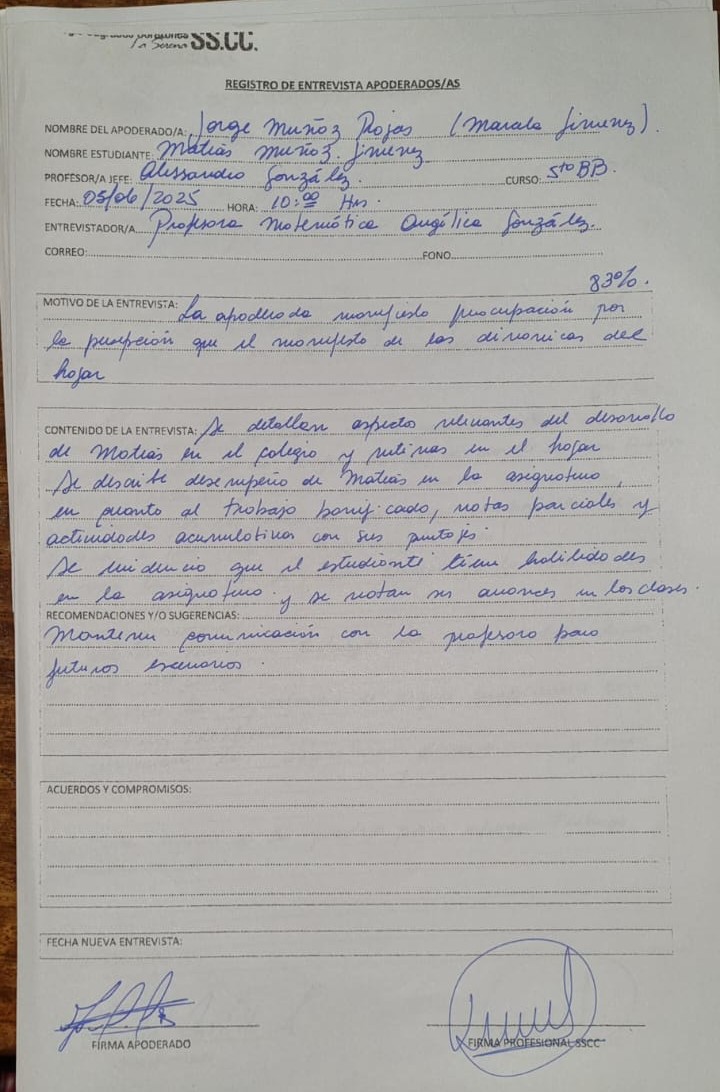 La Serena SS.CC.
REGISTRO DE ENTREVISTA APODERADOS/AS
NOMBRE DEL APODERADO/A: Jorge Muñoz Rojas (Marcela Jimenez).
NOMBRE ESTUDIANTE: Matías Muñoz Jimenez
PROFESOR/A JEFE: Alessandro González. CURSO: 5to BB.
FECHA: 05/06/2025 HORA: 10:00 Hrs.
ENTREVISTADOR/A Profesora Matemática Angélica González.
CORREO: FONO
83%.
MOTIVO DE LA ENTREVISTA: La apoderada manifiesta preocupación por
la percepción que el manifiesta de las dinámicas del
hogar
CONTENIDO DE LA ENTREVISTA: Se detallan aspecto relevantes del desarrollo
de Matías en el colegio y rutinas en el hogar
Se describe desempeño de Matías en la asignatura,
en cuanto al trabajo bonificado, notas parciales y
actividades acumulativas con sus puntajes.
Se evidencia que el estudiante tiene habilidades
en la asignatura y se notan sus avances en las clases.
RECOMENDACIONES Y/O SUGERENCIAS:
Mantener comunicación con la profesora para
futuros escenarios.
ACUERDOS Y COMPROMISOS:
FECHA NUEVA ENTREVISTA:
FIRMA APODERADO FIRMA PROFESIONAL SSCC